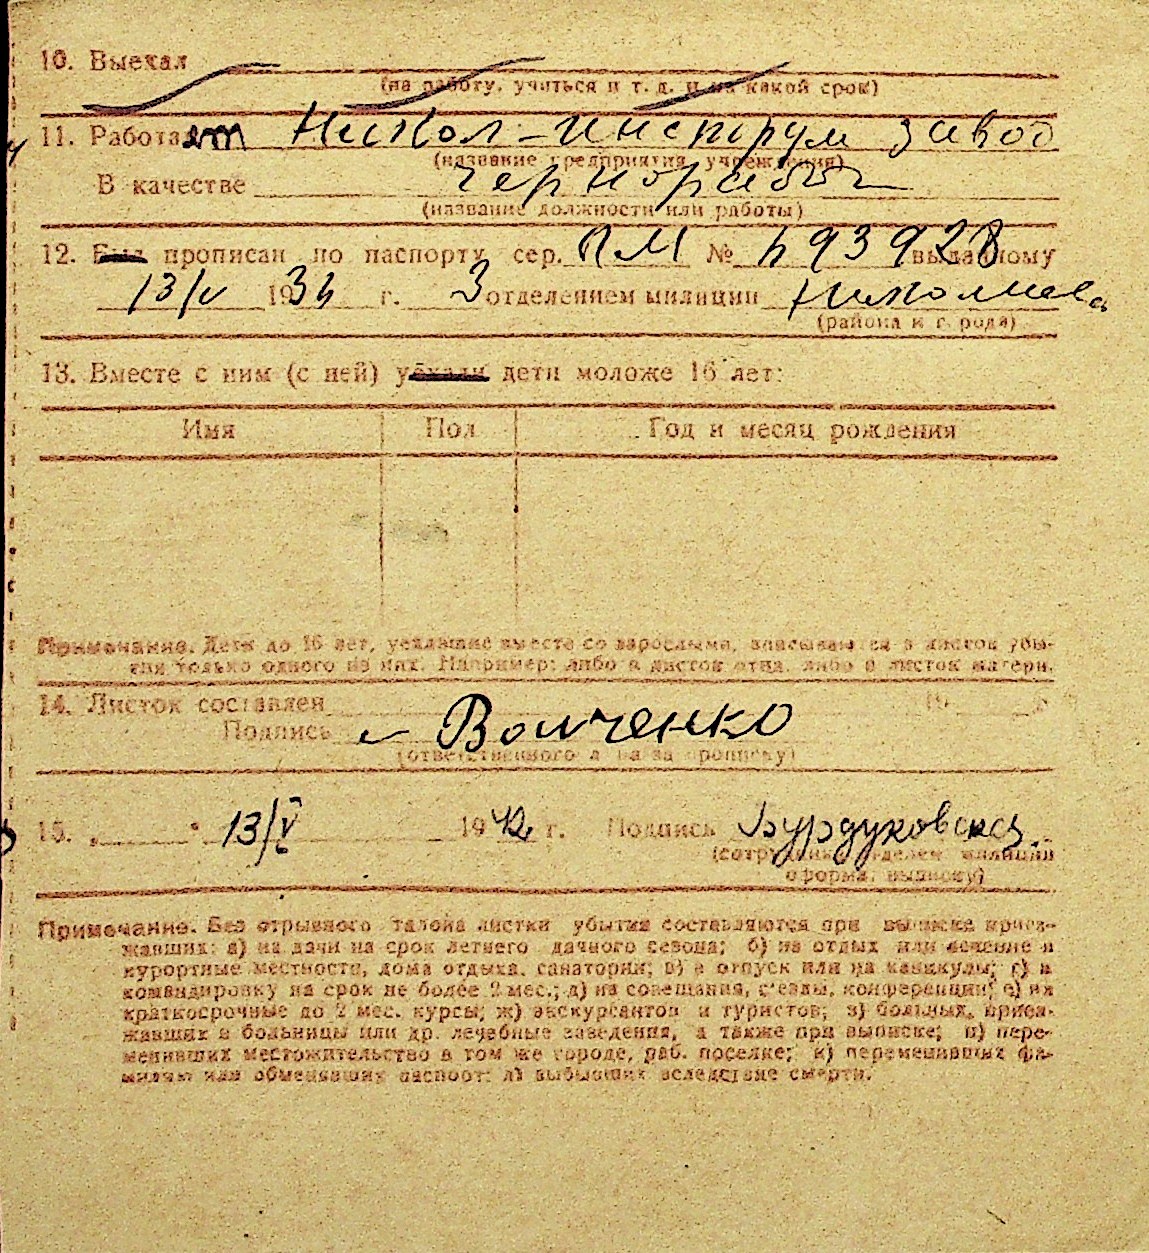 10. Выехал
(на работу, учиться и т. д. и на какой срок)
11. Работает Никол-инструм завод
(название предприятия, учреждения)
В качестве чернорабоч
(название должности или работы)
12. Был прописан по паспорту сер. ПМ № 493928 выданному
13/V 1934 г. 3 отделением милиции Николаева
(района и города)
13. Вместе с ним (с ней) уехали дети моложе 16 лет:
Имя Пол Год и месяц рождения
Примечание. Дети до 16 лет, уехавшие вместе со взрослыми, вписываются в листок убы-
тия только одного из них. Например: либо в листок отца, либо в листок матери.
14. Листок составлен 19 г.
Подпись Волченко
(ответственного лица за прописку)
15. „ " 13/V 1942 г. Подпись Бурдуковская
(сотрудника отделен милиции
оформ. выписку)
Примечание. Без отрывного талона листки убытия составляются при выписке приез-
жавших: а) на дачи на срок летнего дачного сезона; б) на отдых или лечение в
курортные местности, дома отдыха, санатории; в) в отпуск или на каникулы; г) в
командировку на срок не более 2 мес.; д) на совещания, с'езды, конференции; е) на
краткосрочные до 2 мес. курсы; ж) экскурсантов и туристов; з) больных, приез-
жавших в больницы или др. лечебные заведения, а также при выписке; и) пере-
менивших местожительство в том же городе, раб. поселке; к) переменивших фа-
милию или обменявших паспорт; л) выбывших вследствие смерти.